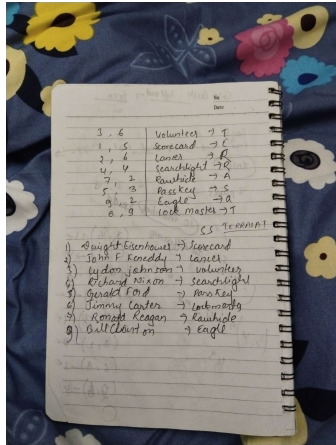 No
Date
3, 6 Volunteer → T
1, 5 Scorecard → E
2, 6 Lancer → R
4, 4 Searchlight → R
7, 2 Rawhide → A
5, 3 Passkey → S
9, 2 Eagle → a
8, 9 Lock master → T
SS TERRAPAT
1) Dwight Eisenhower → Scorecard
2) John F Keneddy → Lancer
3) Lydon Johnson → Volunteer
4) Richard Nixon → Searchlight
5) Gerald Ford → Passkey
6) Jimmy Carter → Lockmaster
7) Ronald Reagan → Rawhide
8) Bill Clinton → Eagle